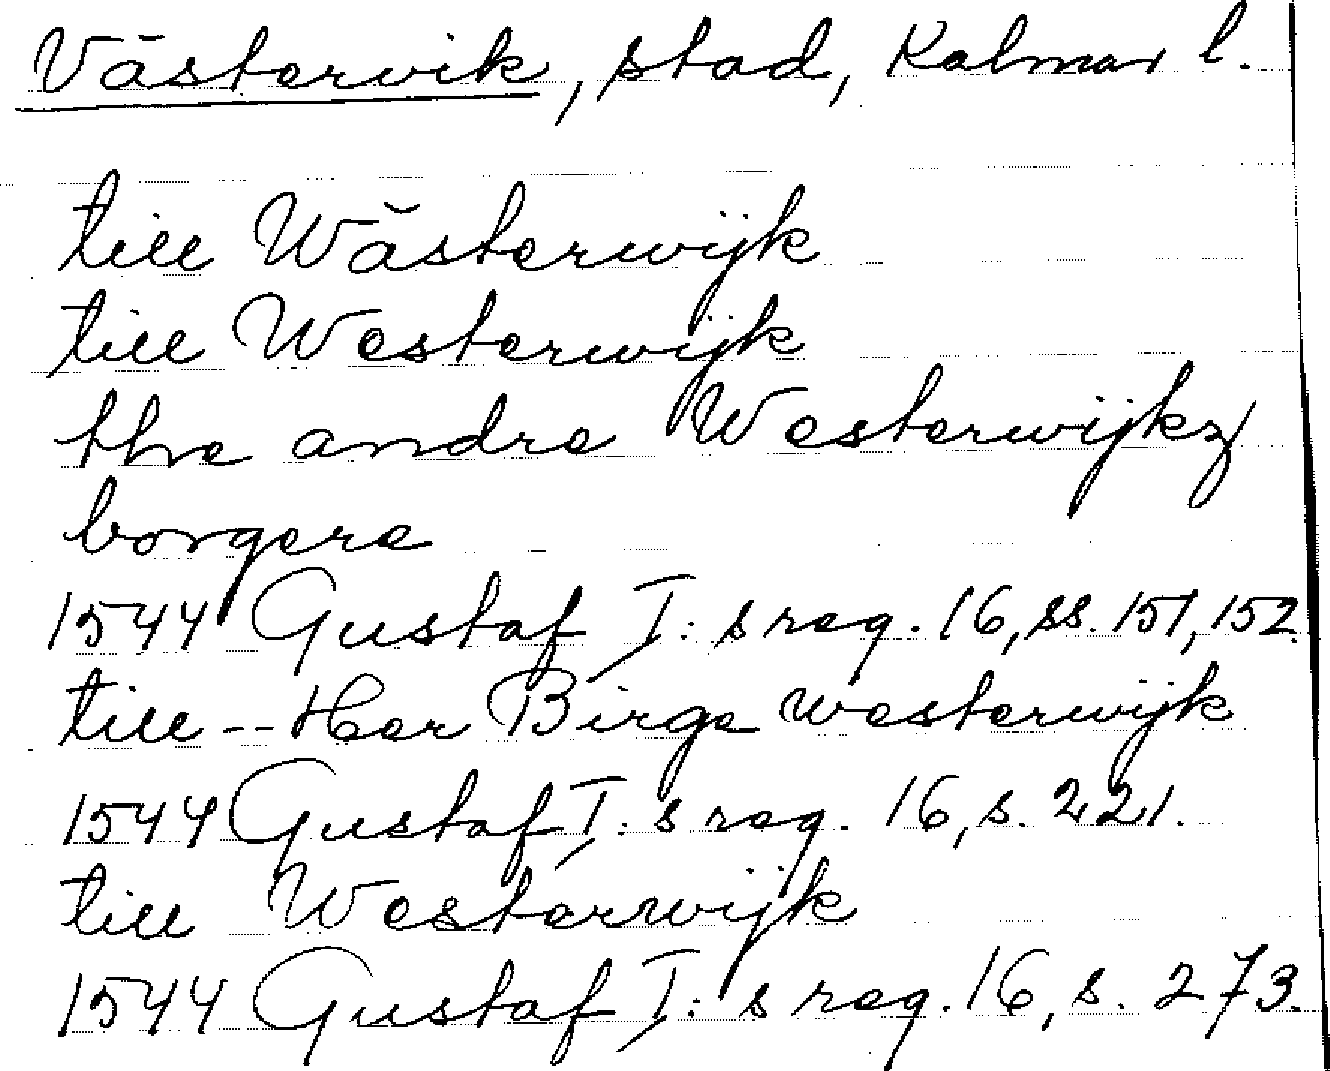 Västervik, stad, Kalmar l.
till Wästerwijk
till Westerwijk
the andre Westerwijkz
borgere
1544 Gustaf I: s reg. 16, ss. 151, 152.
till -- Her Birge westerwijk
1544 Gustaf I: s reg. 16, s. 221.
till Westerwijk
1544 Gustaf I: s reg. 16, s. 273.